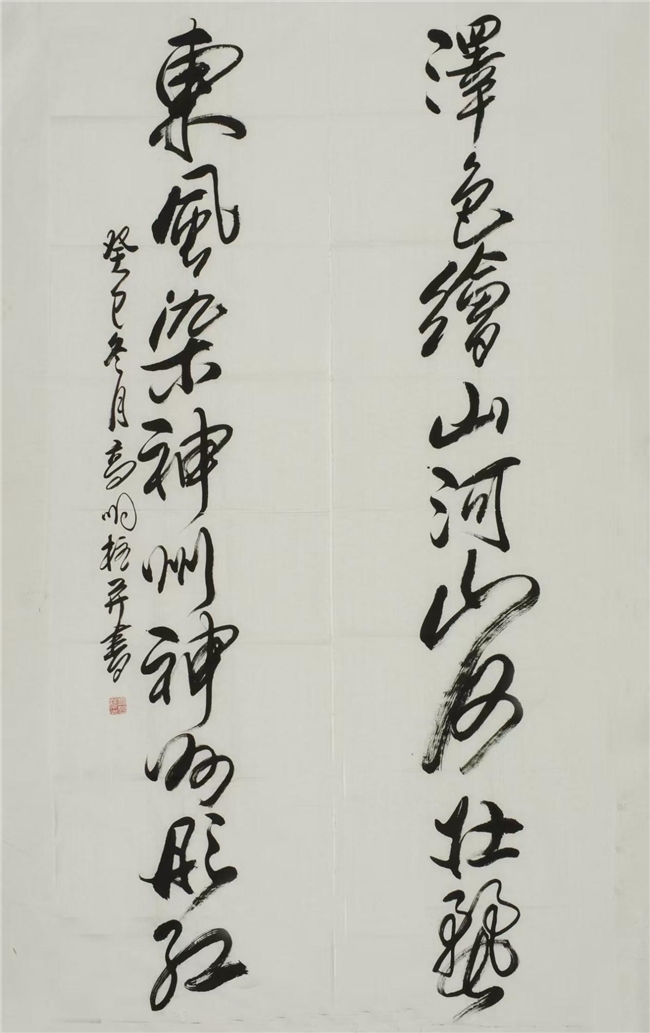 澤色繪山河山河壯
東風染神州神州彤紅
癸巳冬月高明并書